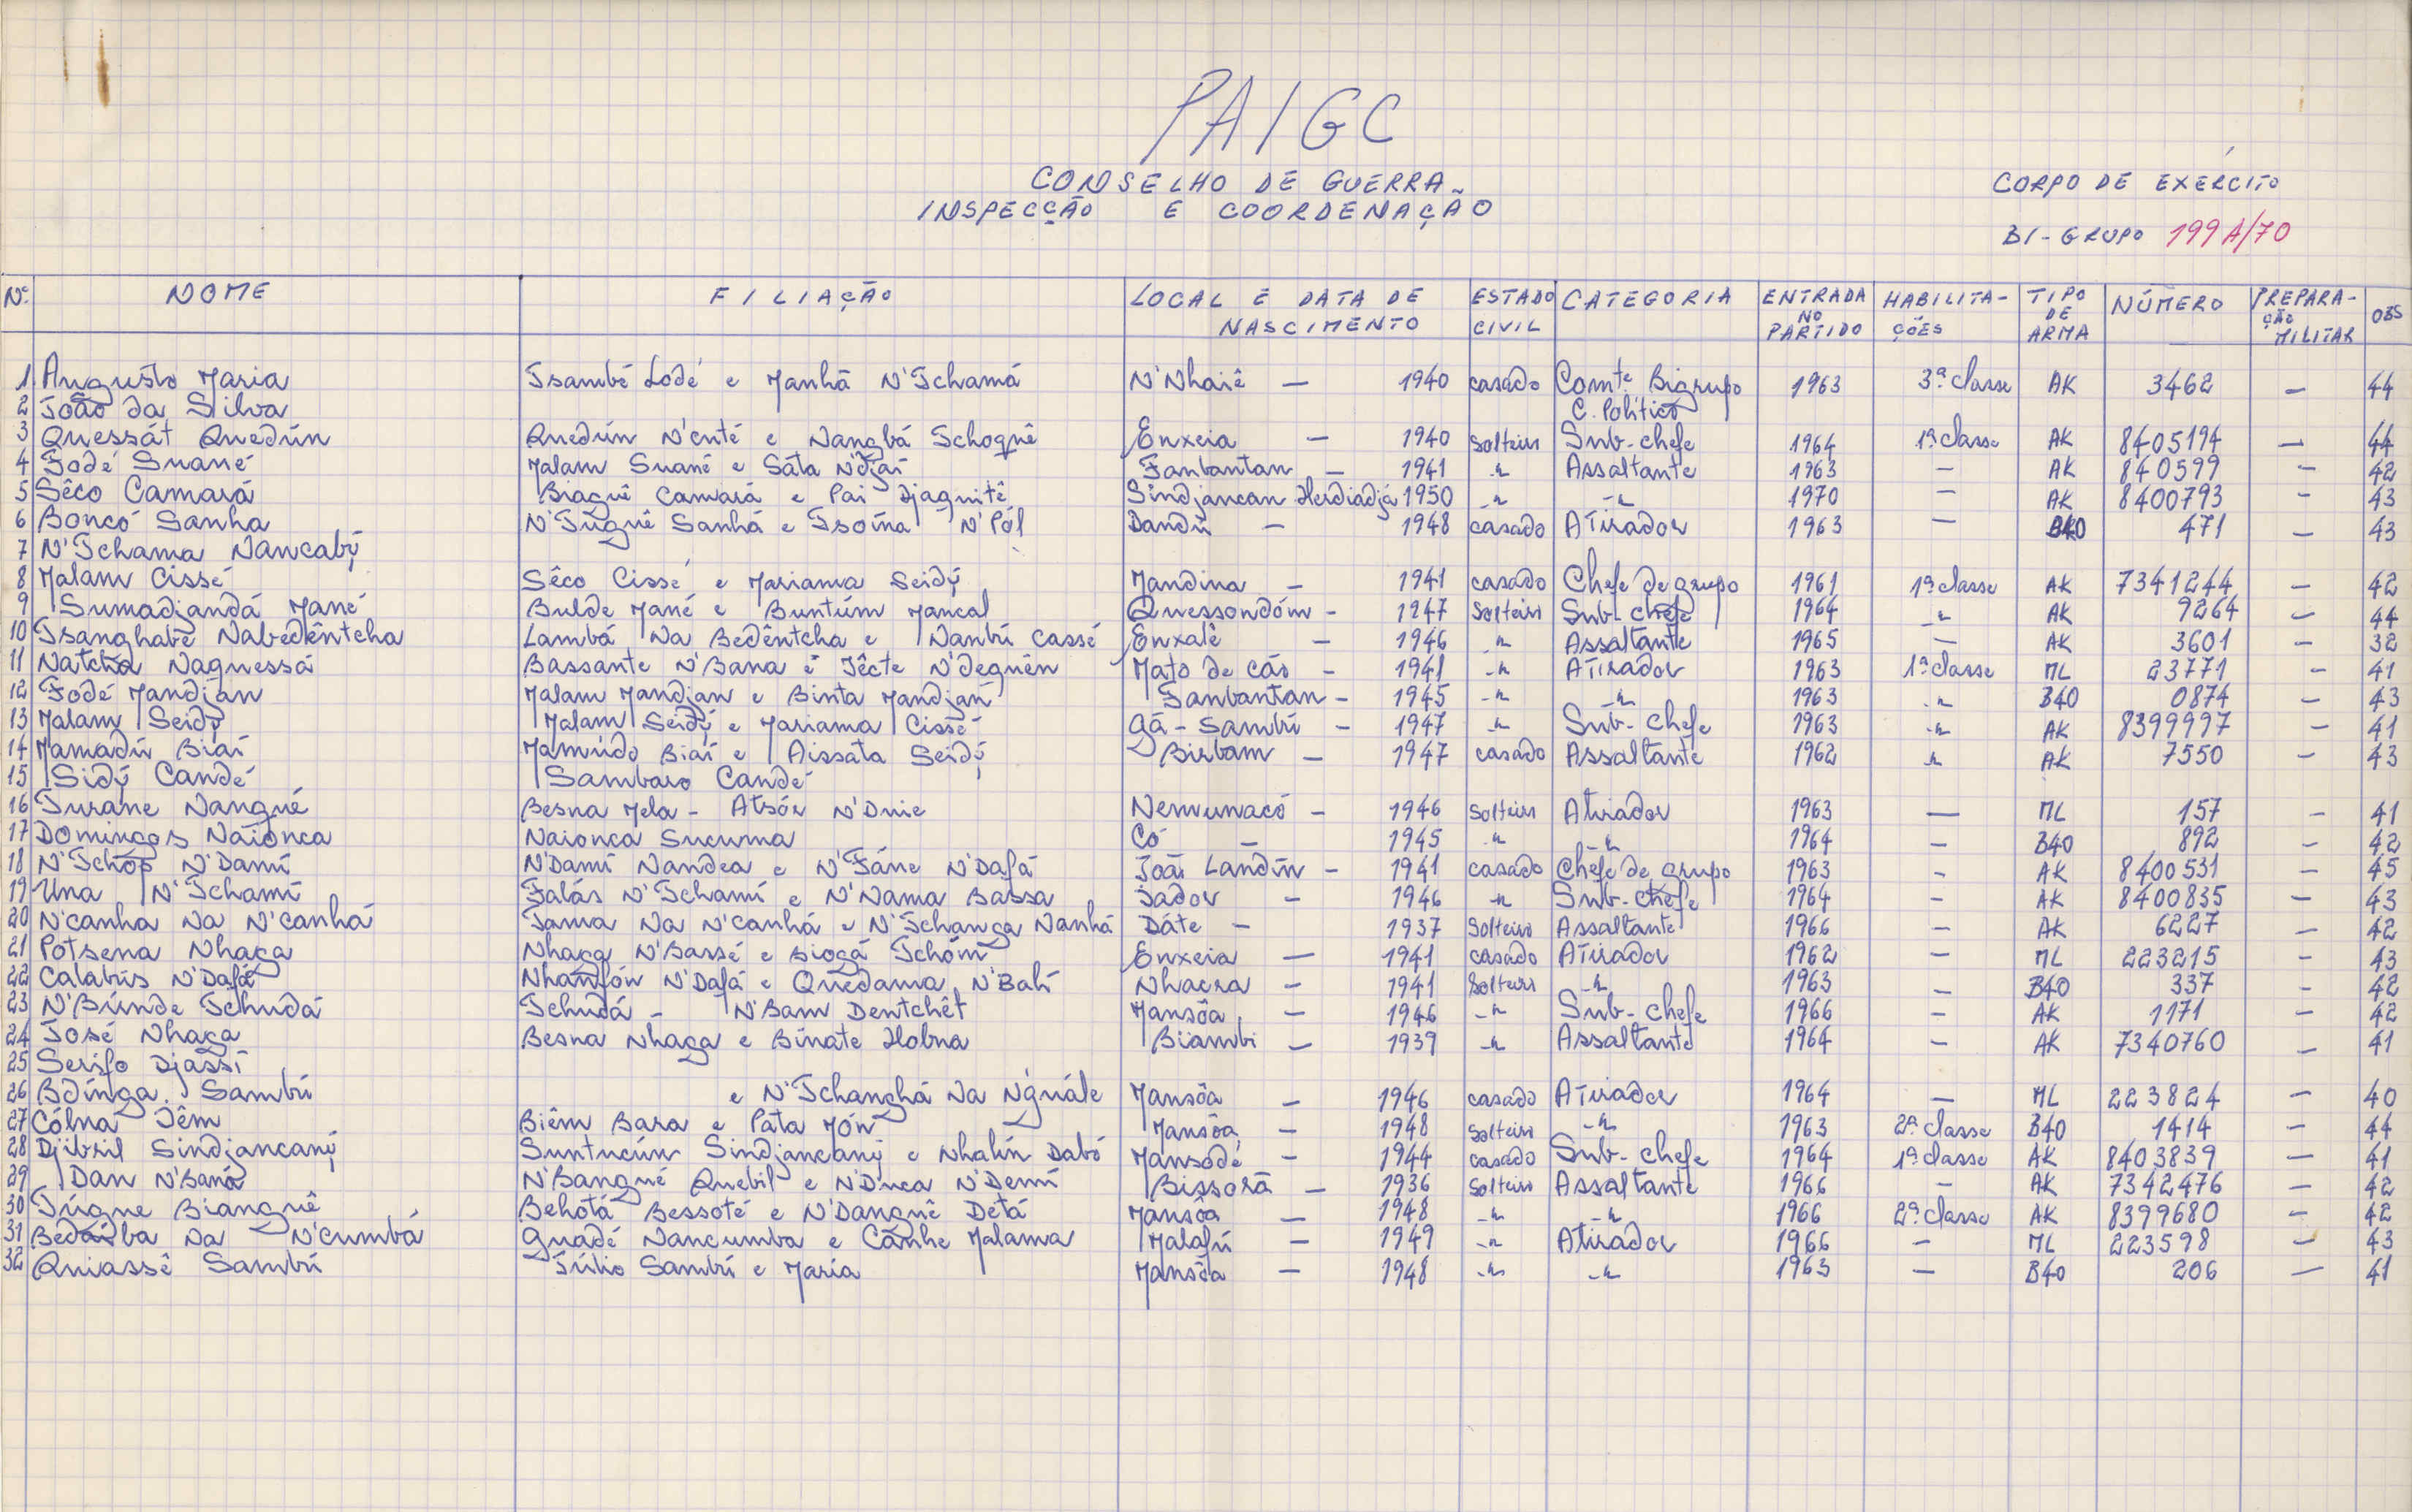 PAIGC
CONSELHO DE GUERRA
INSPECÇÃO E COORDENAÇÃO
CORPO DE EXÉRCITO
BI-GRUPO 199A/70
Nº NOME FILIAÇÃO LOCAL E DATA DE NASCIMENTO ESTADO CIVIL CATEGORIA ENTRADA NO PARTIDO HABILITAÇÕES TIPO DE ARMA NÚMERO PREPARAÇÃO MILITAR OBS
1 Augusto Maria Tsambé Lodé e Manhã N'Tchamá N'Nhaiê — 1940 casado Comte. Bigrupo 1963 3ª classe AK 3462 — 44
2 João da Silva C. Político
3 Quessát Quedún Quedún N'enté e Nangbá Tchoquê Enxeia — 1940 Solteiro Sub-chefe 1964 1ª classe AK 8405194 — 44
4 Fodé Suané Malam Suané e Sáta N'djai Fanbantan — 1941 -"- Assaltante 1963 — AK 840599 — 42
5 Sêco Camará Biaguê Camará e Pai Djaquitê Sindjancan Herdiadjá 1950 -"- -"- 1970 — AK 8400793 — 43
6 Boncó Sanha N'Tuguê Sanhá e Tsoma N'Pól Dandú — 1948 casado Atirador 1963 — B40 471 — 43
7 N'Tchama Nancabý
8 Malam Cissé Sêco Cissé e Mariama Seidý Mandina — 1941 casado Chefe de grupo 1961 1ª classe AK 7341244 — 42
9 Sumadjandá Mané Bulde Mané e Buntúm Mancal Quessondóm — 1947 Solteiro Sub-chefe 1964 -"- AK 9264 — 44
10 Tsanghabe Nabedêntcha Lambá Na Bedêntcha e Nanbú Cassé Enxalê — 1946 -"- Assaltante 1965 — AK 3601 — 32
11 Natcha Naquessá Bassante N'Bana e Têcte N'deguên Mato de cão — 1941 -"- Atirador 1963 1ª classe ML 23771 — 41
12 Fodé Mandjan Malam Mandjan e Binta Mandjan Sanbantan — 1945 -"- -"- 1963 -"- B40 0874 — 43
13 Malam Seidý Malam Seidý e Mariama Cissé Gã-Sambú — 1947 -"- Sub-chefe 1963 -"- AK 8399997 — 41
14 Mamadú Biai Mamúdo Biai e Aissata Seidý Birbam — 1947 casado Assaltante 1962 -"- AK 7550 — 43
15 Sidý Candé Sambaro Candé
16 Turane Nangué Besna Mela - Atsór N'Dnie Nemunacó — 1946 Solteiro Atirador 1963 — ML 157 — 41
17 Domingos Naionca Naionca Sucuma Có — 1945 -"- -"- 1964 — B40 892 — 42
18 N'Tchop N'Dami N'Dami Nandea e N'Fáne N'Dafá João Landin — 1941 casado Chefe de grupo 1963 — AK 8400531 — 45
19 Una N'Tchami Falás N'Tchami e N'Nama Bassa Jador — 1946 -"- Sub-chefe 1964 — AK 8400835 — 43
20 N'canha Na N'canhá Tama Na N'canhá e N'Tchanga Nanhá Dáte — 1937 Solteiro Assaltante 1966 — AK 6227 — 42
21 Potsena Nhaga Nhaga N'Bassé e Biogá Tchóm Enxeia — 1941 casado Atirador 1962 — ML 223215 — 43
22 Calabús N'Dafá Nhamfór N'Dafá e Quedama N'Bali Nhacra — 1941 Solteiro -"- 1963 — B40 337 — 42
23 N'Búnde Tchudá Tchudá - N'Bam Dentchêt Mansôa — 1946 -"- Sub-chefe 1966 — AK 1171 — 42
24 José Nhaga Besna Nhaga e Binate Hobna Biambi — 1939 -"- Assaltante 1964 — AK 7340760 — 41
25 Serifo Djassi
26 Bdínga Sambú e N'Tchanghá Na N'guále Mansôa — 1946 casado Atirador 1964 — ML 223824 — 40
27 Cólna Têm Biêm Bara e Páta Món Mansôa — 1948 Solteiro -"- 1963 2ª classe B40 1414 — 44
28 Djibril Sindjancaný Suntucún Sindjancaný e Nhalin Dabó Mansodé — 1944 casado Sub-chefe 1964 1ª classe AK 8403839 — 41
29 Dan N'Baná N'Bangué Quebil e N'Duca N'Demi Bissorã — 1936 Solteiro Assaltante 1966 — AK 7342476 — 42
30 Túgne Bianguê Behotá Bessoté e N'Danguê Detá Mansôa — 1948 -"- -"- 1966 2ª classe AK 8399680 — 42
31 Bedaiba Na N'cumbá Guadé Nancumba e Canhe Malama Malafú — 1949 -"- Atirador 1966 — ML 223598 — 43
32 Quiassê Sambú Júlio Sambú e Maria Mansôa — 1948 -"- -"- 1963 — B40 206 — 41